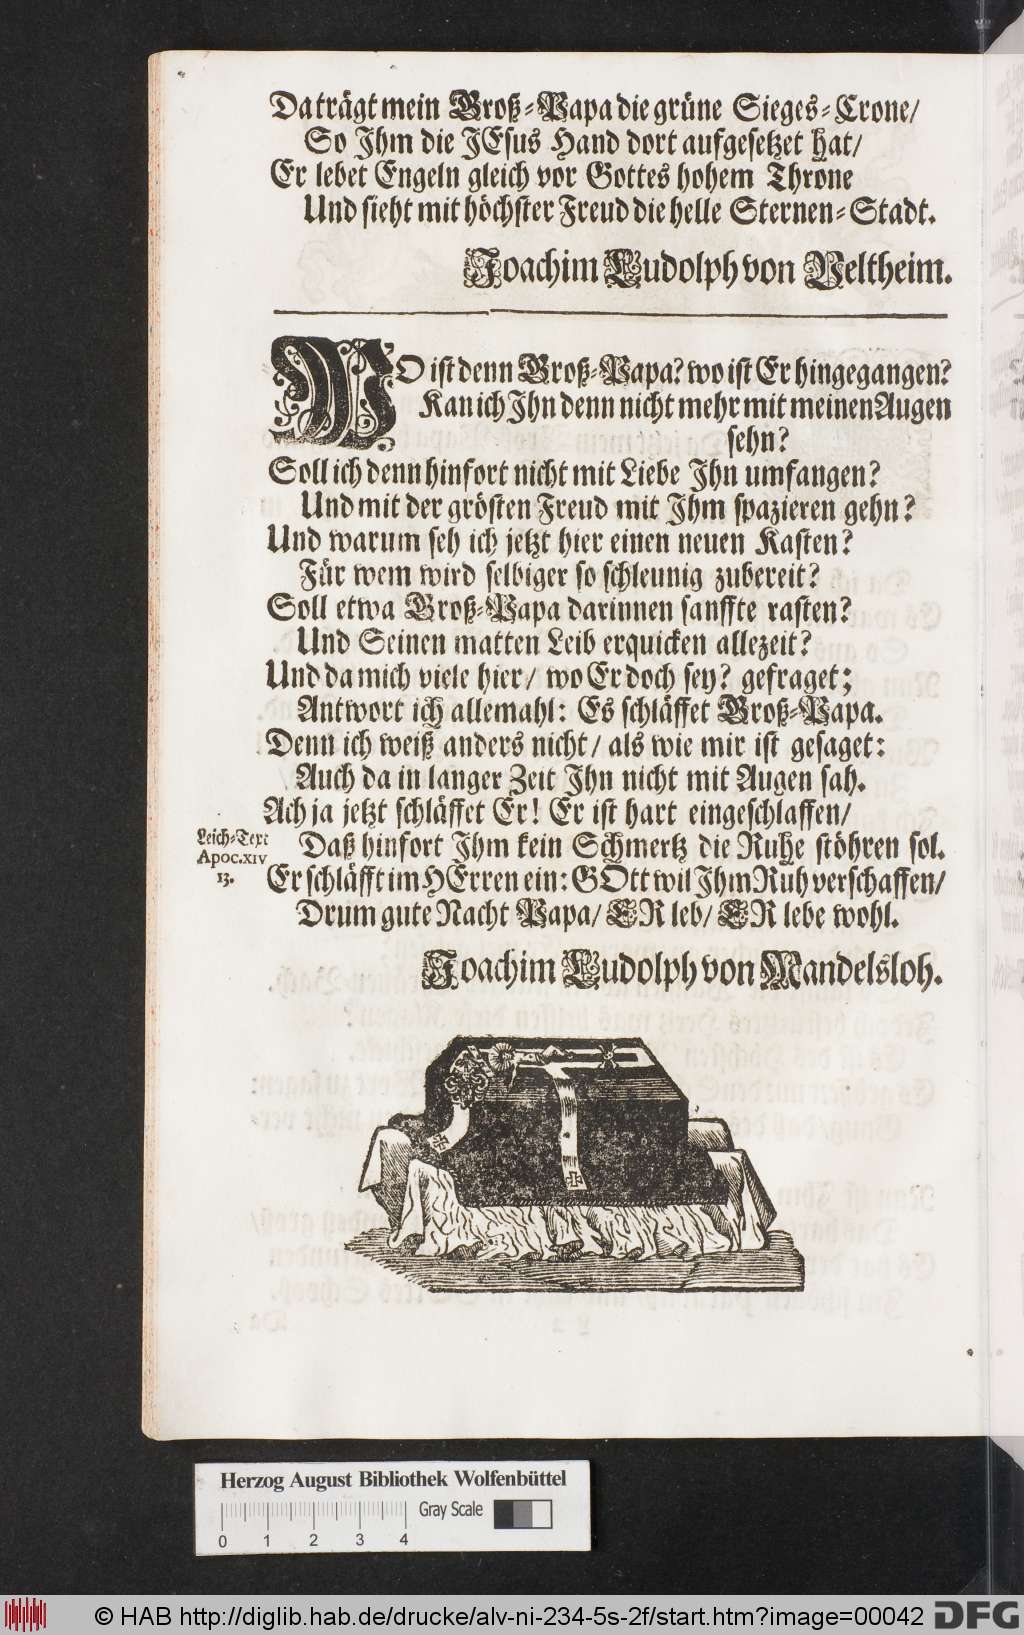 Da trägt mein Groß-Papa die grüne Sieges-Crone/
So Ihm die JEsus Hand dort aufgesetzet hat/
Er lebet Engeln gleich vor Gottes hohem Throne
Und sieht mit höchster Freud die helle Sternen-Stadt.
Joachim Ludolph von Veltheim.
WO ist denn Groß-Papa? wo ist Er hingegangen?
Kan ich Ihn denn nicht mehr mit meinen Augen
sehn?
Soll ich denn hinfort nicht mit Liebe Ihn umfangen?
Und mit der grösten Freud mit Ihm spazieren gehn?
Und warum seh ich jetzt hier einen neuen Kasten?
Für wem wird selbiger so schleunig zubereit?
Soll etwa Groß-Papa darinnen sanffte rasten?
Und Seinen matten Leib erquicken allezeit?
Und da mich viele hier/ wo Er doch sey? gefraget;
Antwort ich allemahl: Es schläffet Groß-Papa.
Denn ich weiß anders nicht/ als wie mir ist gesaget:
Auch da in langer Zeit Ihn nicht mit Augen sah.
Ach ja jetzt schläffet Er! Er ist hart eingeschlaffen/
Leich-Text
Apoc. XIV
13.
Daß hinfort Ihm kein Schmertz die Ruhe stöhren sol.
Er schläfft im HErren ein: GOtt wil Ihm Ruh verschaffen/
Drum gute Nacht Papa/ ER leb/ ER lebe wohl.
Joachim Ludolph von Mandelsloh.
Herzog August Bibliothek Wolfenbüttel
Gray Scale
0 1 2 3 4
© HAB http://diglib.hab.de/drucke/alv-ni-234-5s-2f/start.htm?image=00042
DFG